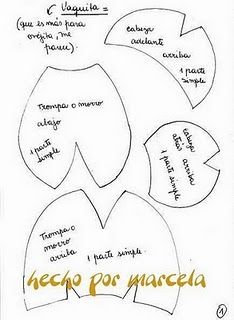 Vaquita =
(que es más para
ovejita, me
pareci)
Cabeza
adelante
arriba
1 parte
simple
Trompa o morro
abajo
1 parte
simple
Cabeza
atrás
arriba
1 parte
simple
Trompa o
morro
arriba
1 parte simple.
hecho por marcela
1